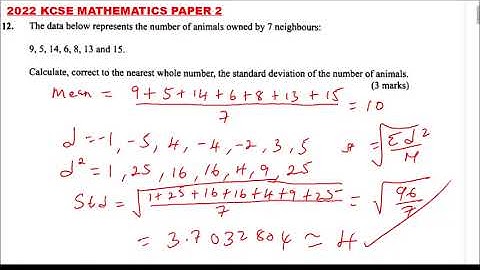 2022 KCSE MATHEMATICS PAPER 2
12. The data below represents the number of animals owned by 7 neighbours:
9, 5, 14, 6, 8, 13 and 15.
Calculate, correct to the nearest whole number, the standard deviation of the number of animals.
(3 marks)
Mean = (9+5+14+6+8+13+15)/7 = 10
d = -1, -5, 4, -4, -2, 3, 5 s = √(Σd²/N)
d² = 1, 25, 16, 16, 4, 9, 25
Std = √((1+25+16+16+4+9+25)/7) = √(96/7)
= 3.7032804 ≃ 4 ✓